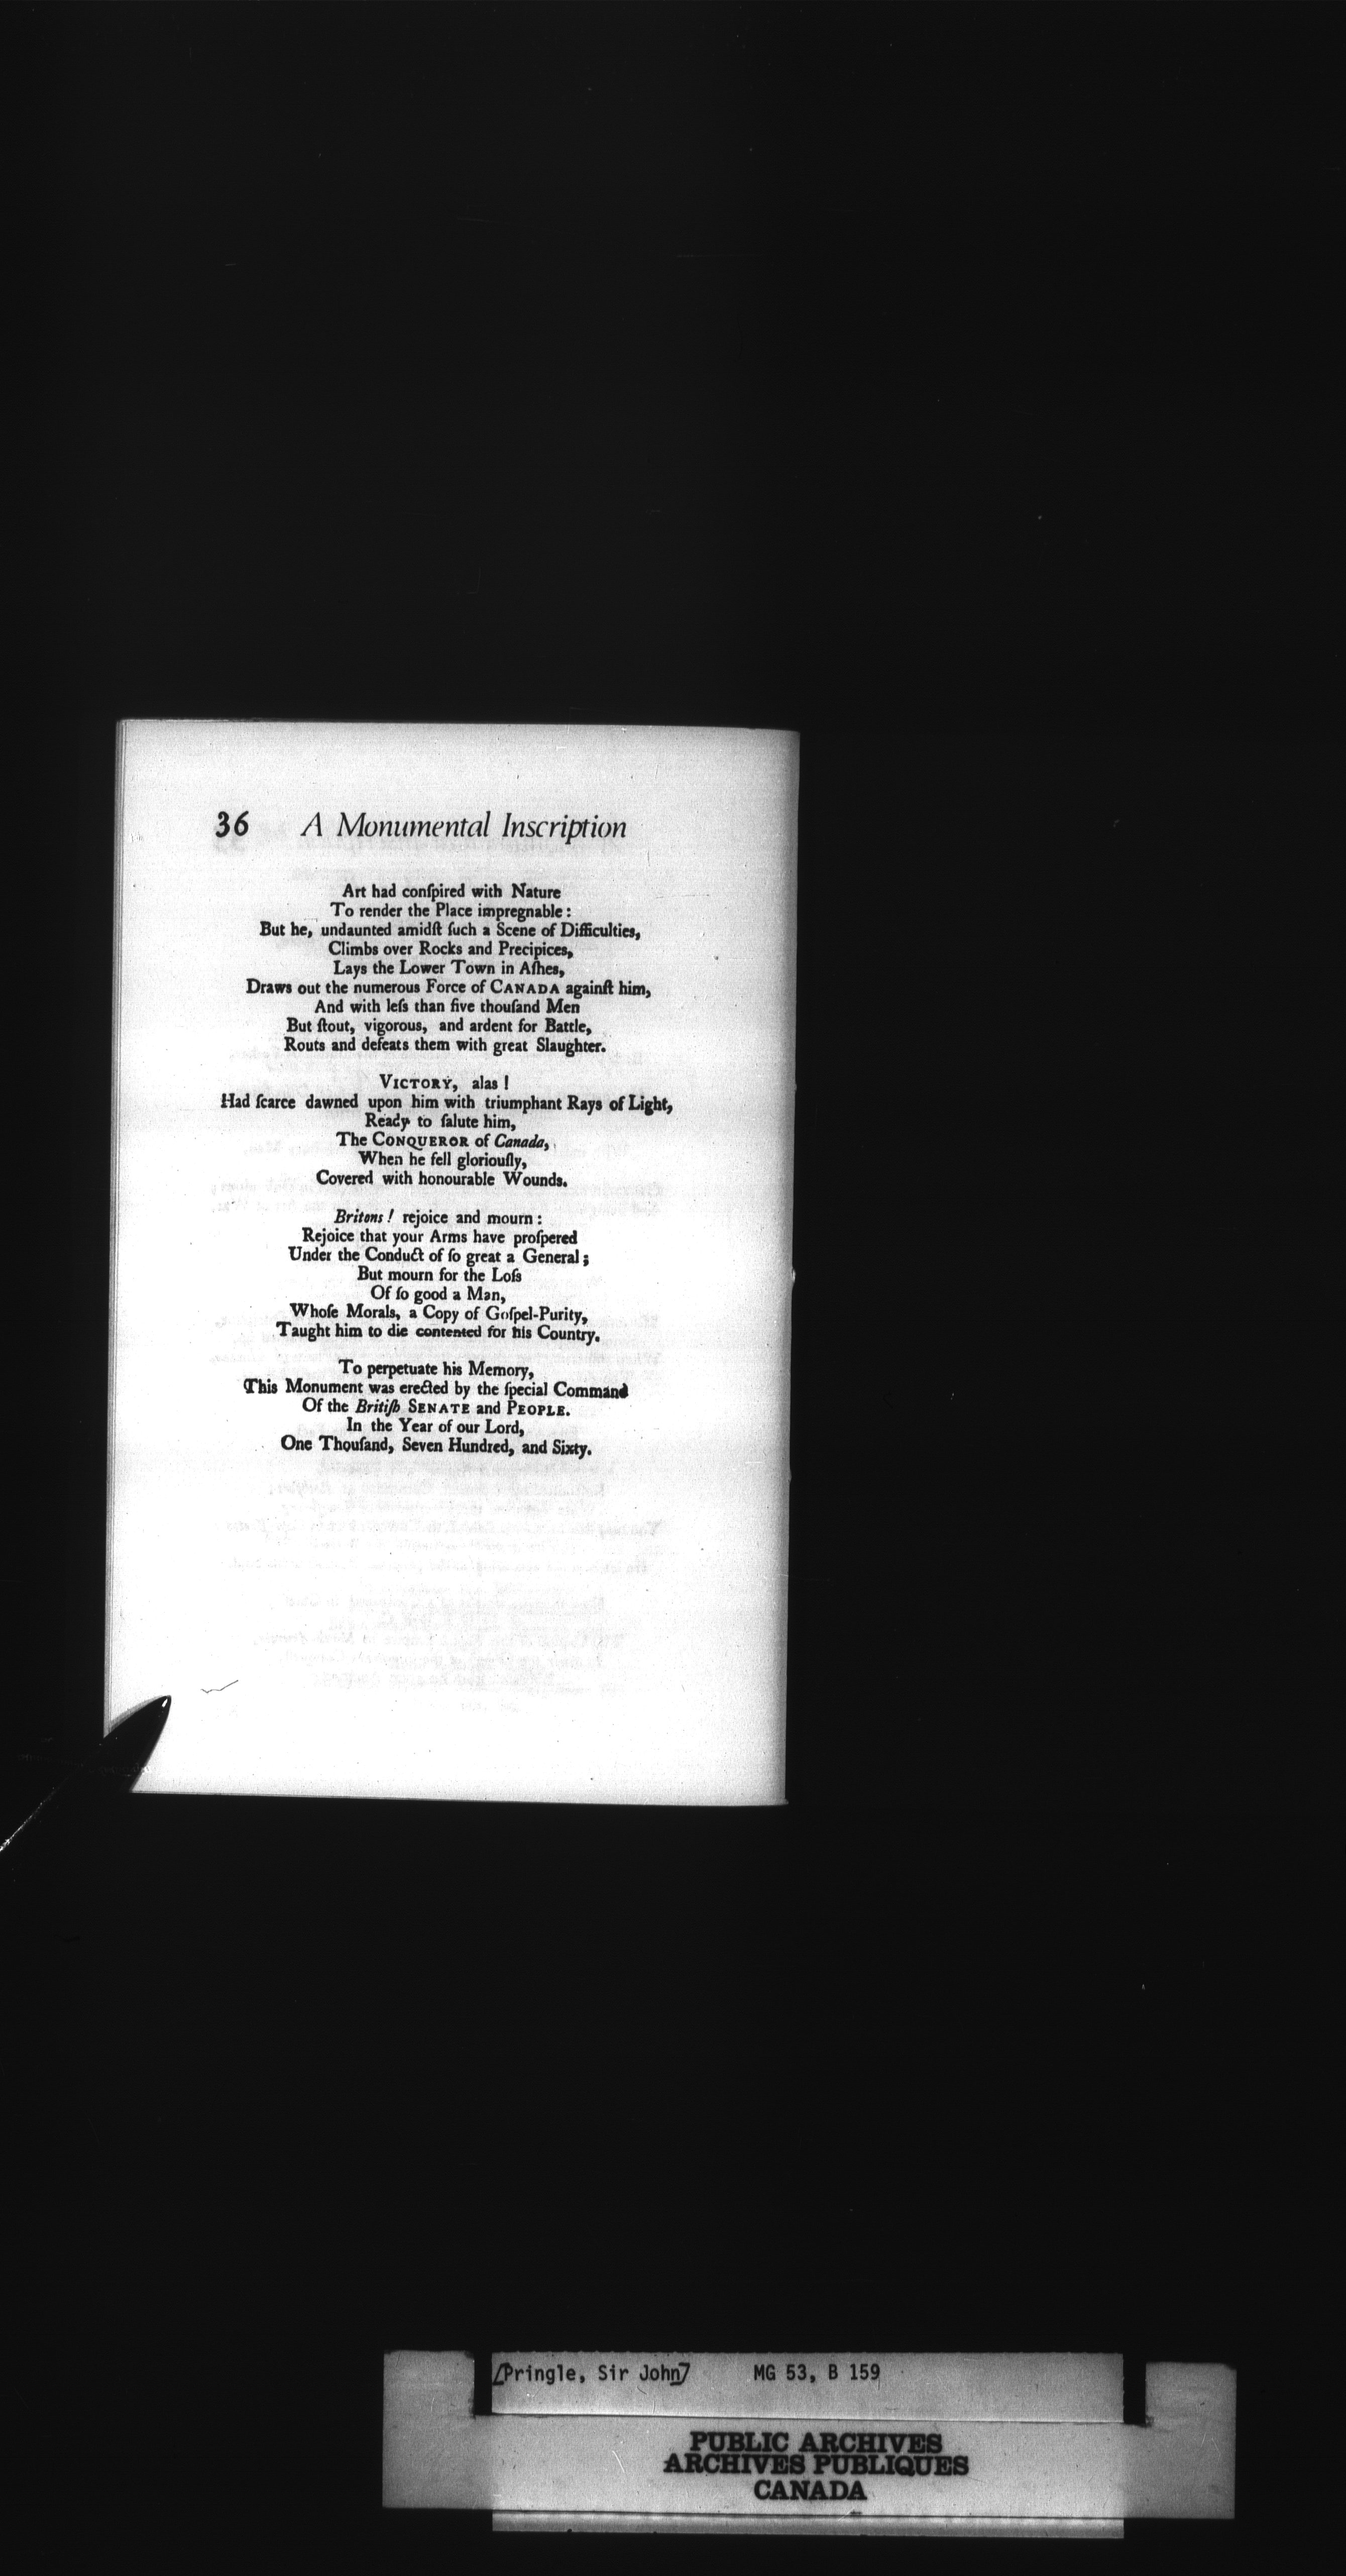 36 A Monumental Inscription
Art had conſpired with Nature
To render the Place impregnable:
But he, undaunted amidſt ſuch a Scene of Difficulties,
Climbs over Rocks and Precipices,
Lays the Lower Town in Aſhes,
Draws out the numerous Force of CANADA againſt him,
And with leſs than five thouſand Men
But ſtout, vigorous, and ardent for Battle,
Routs and defeats them with great Slaughter.
VICTORY, alas!
Had ſcarce dawned upon him with triumphant Rays of Light,
Ready to ſalute him,
The CONQUEROR of Canada,
When he fell gloriouſly,
Covered with honourable Wounds.
Britons! rejoice and mourn:
Rejoice that your Arms have proſpered
Under the Conduct of ſo great a General;
But mourn for the Loſs
Of ſo good a Man,
Whoſe Morals, a Copy of Goſpel-Purity,
Taught him to die contented for his Country.
To perpetuate his Memory,
This Monument was erected by the ſpecial Command
Of the Britiſh SENATE and PEOPLE.
In the Year of our Lord,
One Thouſand, Seven Hundred, and Sixty.
[Pringle, Sir John] MG 53, B 159
PUBLIC ARCHIVES
ARCHIVES PUBLIQUES
CANADA